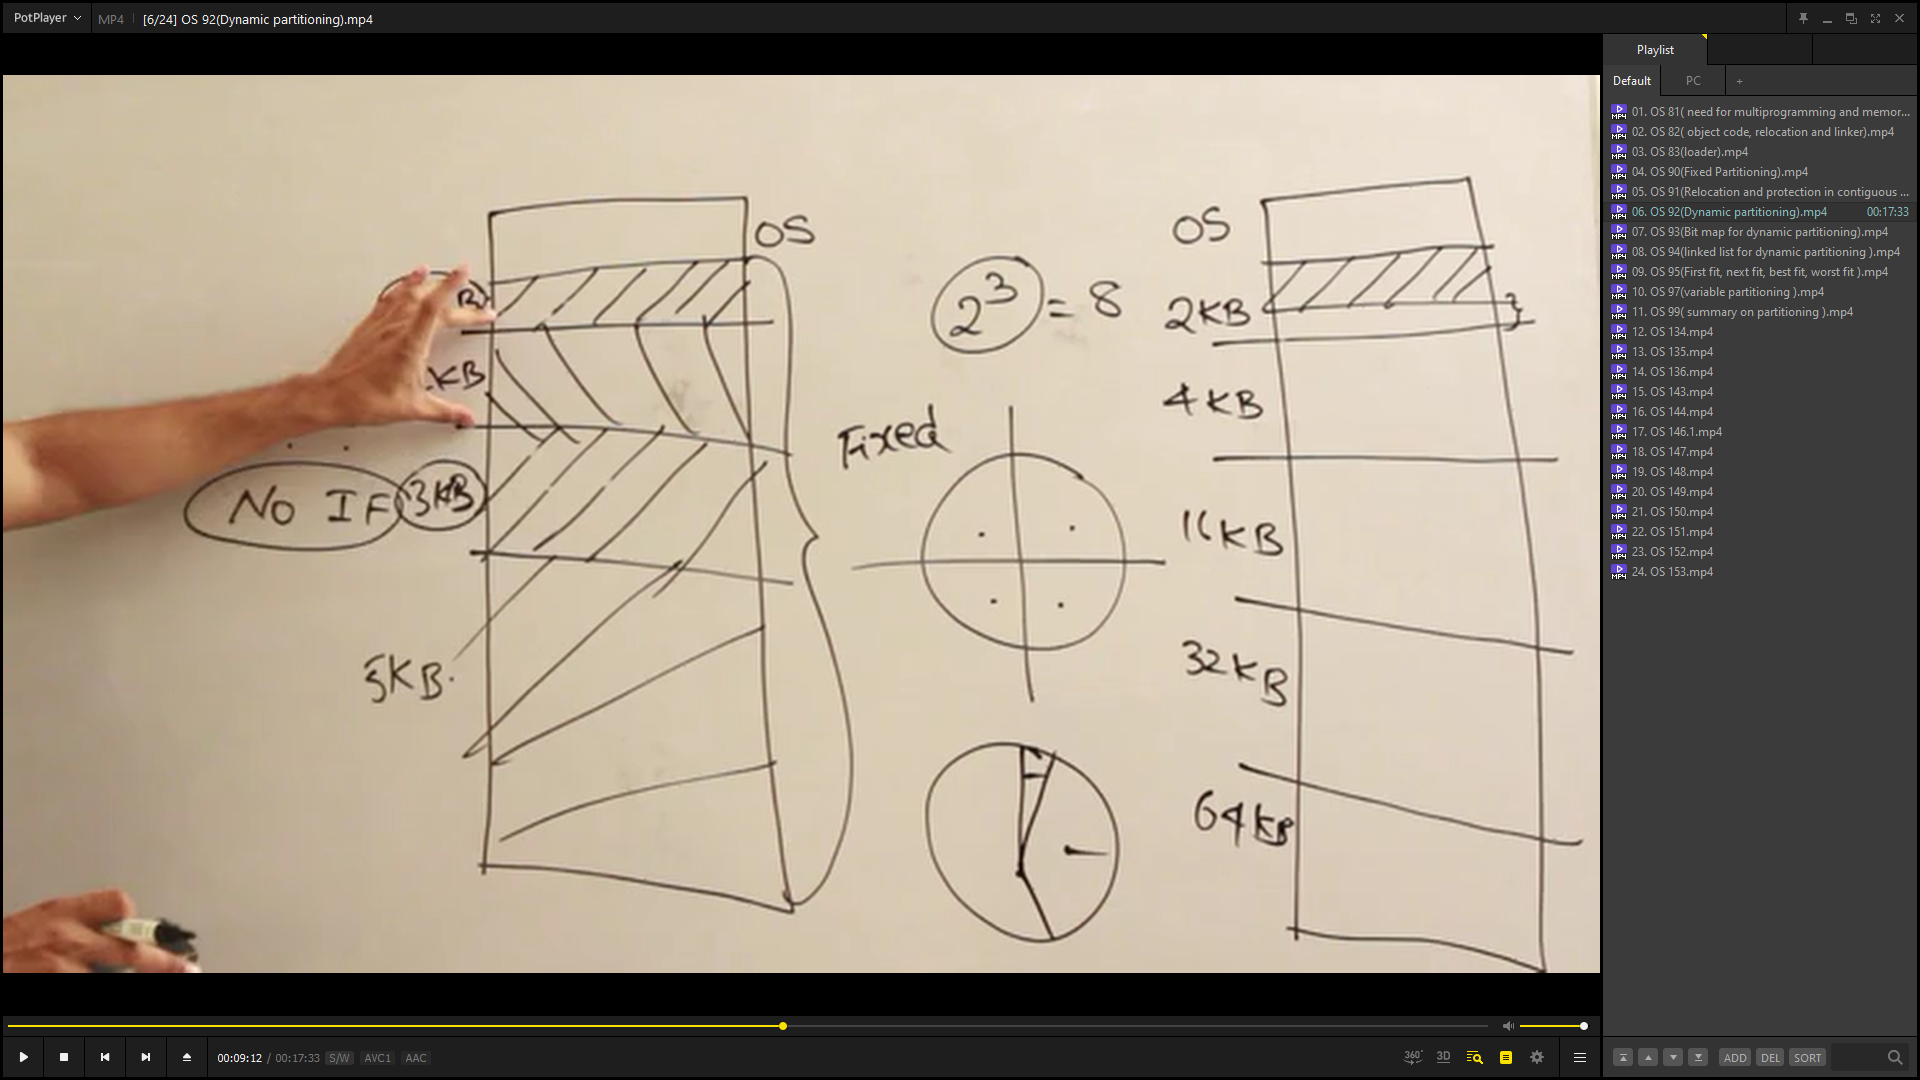 PotPlayer
MP4
[6/24] OS 92(Dynamic partitioning).mp4
OS
B)
KB
NO IF
3KB
5KB.
2^3 = 8
Fixed
OS
2KB
4KB
16KB
32KB
64KB
Playlist
Default
PC
+
01. OS 81( need for multiprogramming and memor...
02. OS 82( object code, relocation and linker).mp4
03. OS 83(loader).mp4
04. OS 90(Fixed Partitioning).mp4
05. OS 91(Relocation and protection in contiguous ...
06. OS 92(Dynamic partitioning).mp4 00:17:33
07. OS 93(Bit map for dynamic partitioning).mp4
08. OS 94(linked list for dynamic partitioning ).mp4
09. OS 95(First fit, next fit, best fit, worst fit ).mp4
10. OS 97(variable partitioning ).mp4
11. OS 99( summary on partitioning ).mp4
12. OS 134.mp4
13. OS 135.mp4
14. OS 136.mp4
15. OS 143.mp4
16. OS 144.mp4
17. OS 146.1.mp4
18. OS 147.mp4
19. OS 148.mp4
20. OS 149.mp4
21. OS 150.mp4
22. OS 151.mp4
23. OS 152.mp4
24. OS 153.mp4
00:09:12 / 00:17:33 S/W AVC1 AAC
360° 3D
ADD DEL SORT